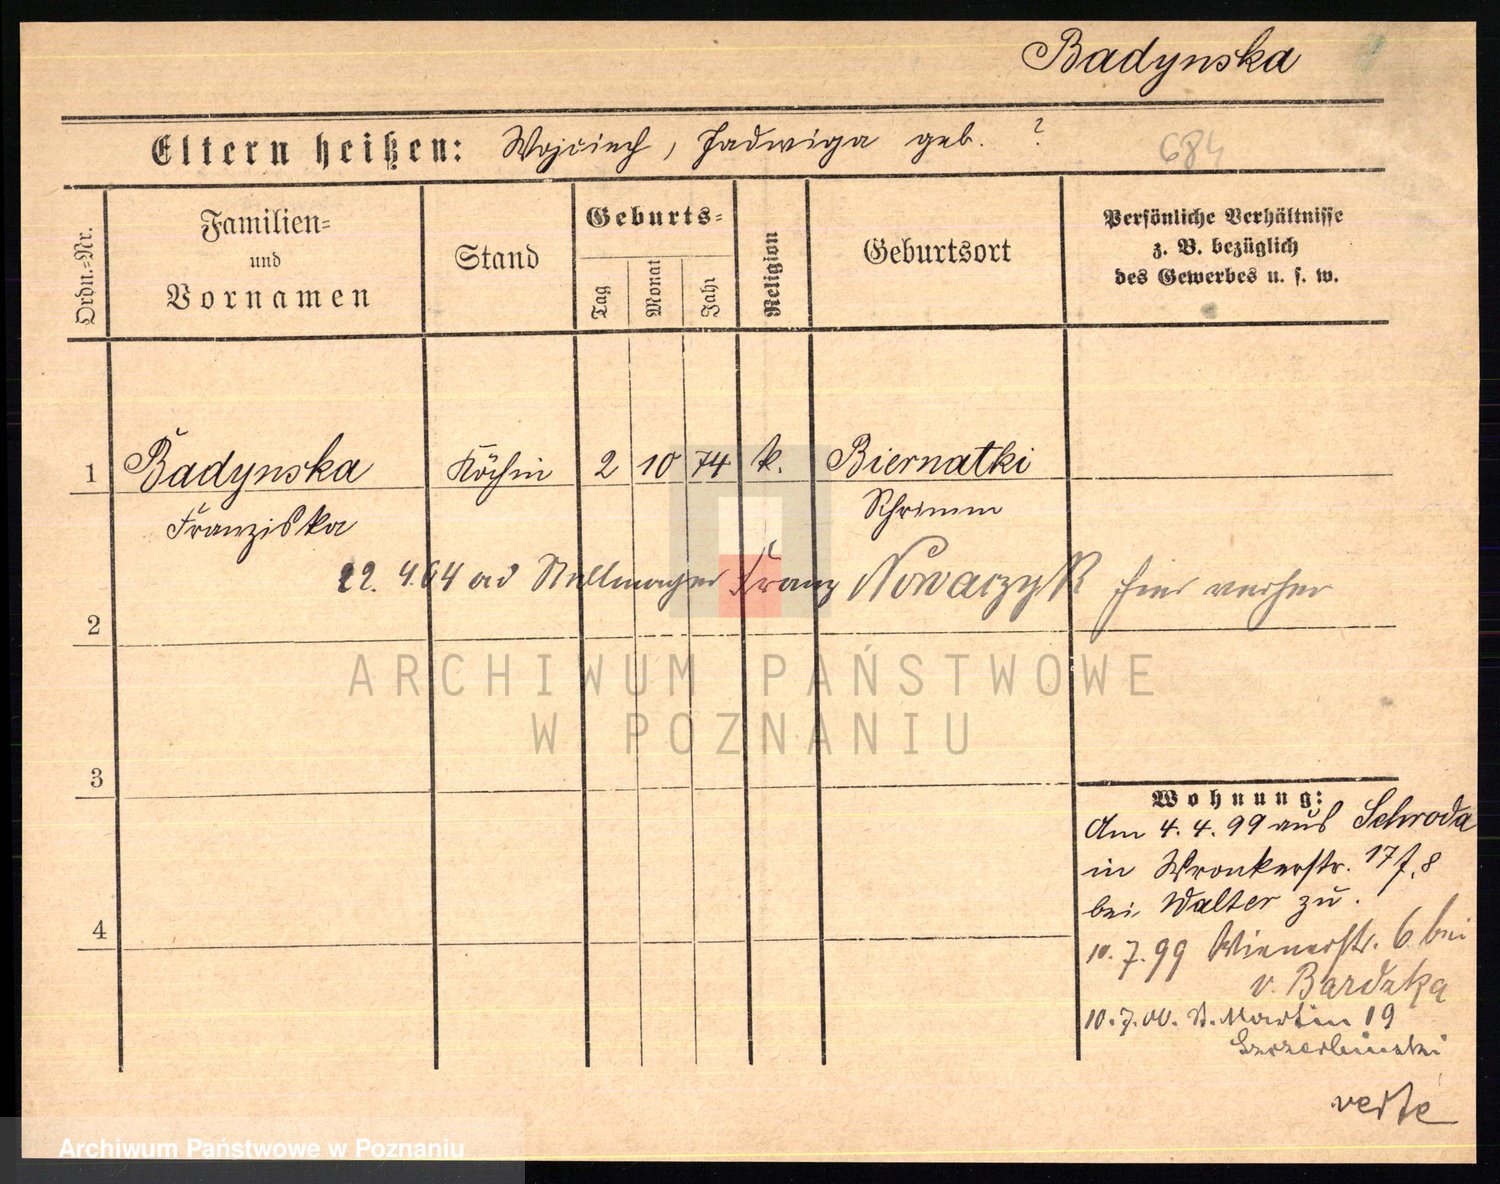 Badynska
Eltern heißen: Wojciech, Jadwiga geb. ?
684
Ordn.=Nr.
Familien=
und
Vornamen
Stand
Geburts=
Tag
Monat
Jahr
Religion
Geburtsort
Persönliche Verhältnisse
z. B. bezüglich
des Gewerbes u. s. w.
1 Badynska Köchin 2 10 74 k. Biernatki
Franziska Schrimm
22. 4. 04 Stellmacher Franz Nowaczyk hier
2
3
4
Wohnung:
Am 4. 4. 99 aus Schroda
in Wronkerstr. 17
bei Walter zu.
10. 7. 99 Wienerstr. 6 bei
v. Bardzka
10. 7. 00. St. Martin 19
verte
ARCHIWUM PAŃSTWOWE
W POZNANIU
Archiwum Państwowe w Poznaniu